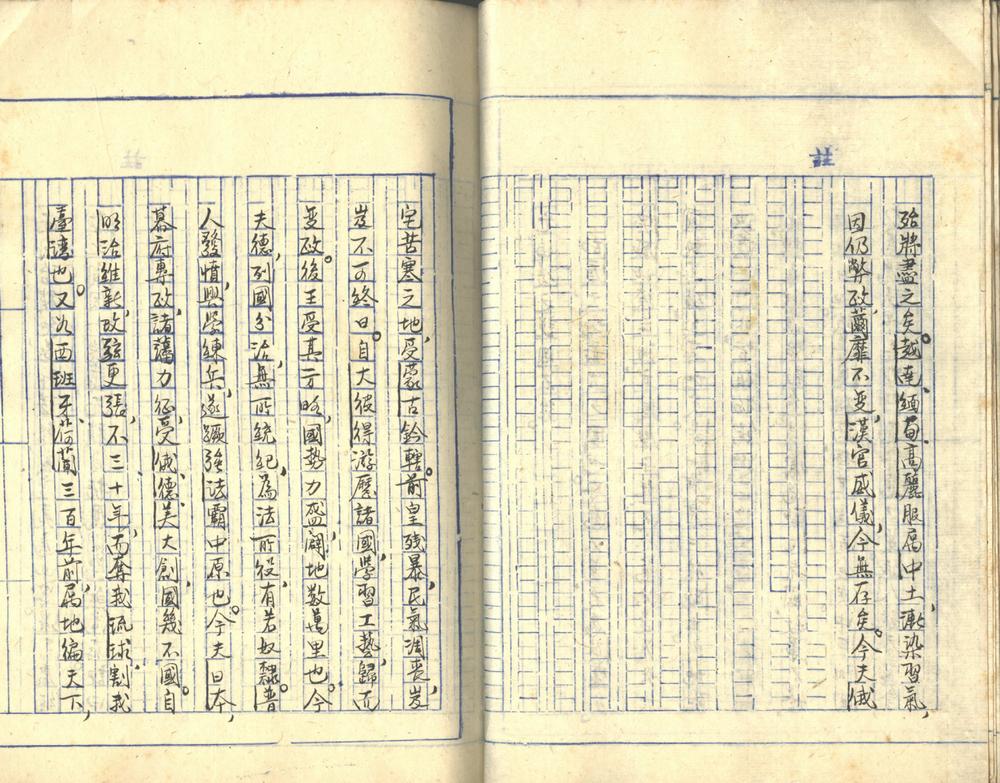 註
殆將盡之矣。越南、緬甸、高麗服屬中土，漸染習氣，
因仍弊政，薾靡不變，漢官威儀，今無存矣。今夫俄
宅苦寒之地，受蒙古鈐轄。前皇殘暴，民氣凋喪，岌
岌不可終日。自大彼得游歷諸國，學習工藝，歸而
變政。後王受其方略，國勢力盛，闢地數萬里也。今
夫德，列國分治，無所統紀，為法所役，有若奴隸。普
人發憤，興學練兵，遂蹶強法，霸中原也。今夫日本，
幕府專政，諸藩力征，受俄、德、美大創，國幾不國。自
明治維新，改弦更張，不三十年，而奪我琉球，割我
臺灣也。又如西班牙、荷蘭，三百年前，屬地徧天下，